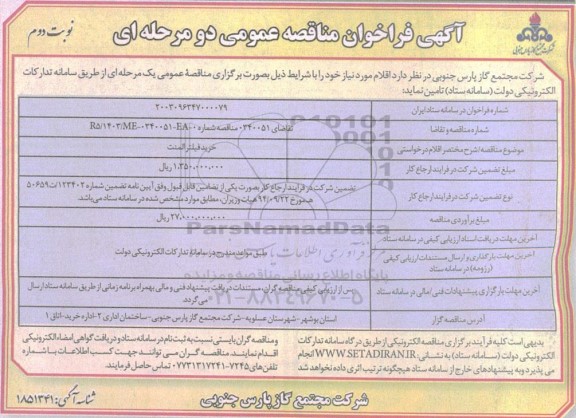 نوبت دوم
آگهی فراخوان مناقصه عمومی دو مرحله ای
شرکت مجتمع گاز پارس جنوبی
شرکت مجتمع گاز پارس جنوبی در نظر دارد اقلام مورد نیاز خود را با شرایط ذیل بصورت برگزاری مناقصه عمومی یک مرحله ای از طریق سامانه تدارکات
الکترونیکی دولت (سامانه ستاد) تامین نماید:
شماره فراخوان در سامانه ستاد ایران
۲۰۰۳۰۹۶۳۴۷۰۰۰۰۷۹
شماره مناقصه و تقاضا
تقاضای ۰۳۴۰۰۵۱ مناقصه شماره R5/۱۴۰۳/ME-۰۳۴۰۰۵۱-EA۰۰
موضوع مناقصه/شرح مختصر اقلام درخواستی
خرید فیلتر المنت
مبلغ تضمین شرکت در فرایند ارجاع کار
۱،۳۵۰،۰۰۰،۰۰۰ ریال
نوع تضمین شرکت در فرایند ارجاع کار
تضمین شرکت در فرایند ارجاع کار بصورت یکی از تضامین قابل قبول وفق آیین نامه تضمین شماره ۱۲۳۴۰۲/ت۵۰۶۵۹
ه مورخ ۹۴/۰۹/۲۲ هیات وزیران، مطابق موارد مشخص شده در سامانه ستاد می باشد.
مبلغ برآوردی مناقصه
۲۷،۰۰۰،۰۰۰،۰۰۰ ریال
آخرین مهلت دریافت اسناد ارزیابی کیفی در سامانه ستاد
آخرین مهلت بارگذاری و ارسال مستندات ارزیابی کیفی
(رزومه) در سامانه ستاد
طبق مواعد مندرج در سامانه تدارکات الکترونیکی دولت
آخرین مهلت بارگزاری پیشنهادات فنی/مالی در سامانه ستاد
پس از ارزیابی کیفی مناقصه گران، مستندات دریافت پیشنهاد فنی و مالی بهمراه برنامه زمانی از طریق سامانه ستاد ارسال
می گردد.
آدرس مناقصه گزار
استان بوشهر - شهرستان عسلویه - شرکت مجتمع گاز پارس جنوبی - ساختمان اداری ۲ - اداره خرید - اتاق ۱
ParsNamadData
پایگاه اطلاع رسانی مناقصه و مزایده
۰۲۱-۸۸۳۴۹۶۷۰-۵
بدیهی است کلیه فرآیند برگزاری مناقصه الکترونیکی از طریق درگاه سامانه تدارکات
الکترونیکی دولت (سامانه ستاد) به نشانی: WWW.SETADIRAN.IR انجام
می پذیرد و به پیشنهادهای خارج از سامانه ستاد هیچگونه ترتیب اثری داده نخواهد شد
و مناقصه گران بایستی نسبت به ثبت نام در سامانه ستاد و دریافت گواهی امضاء الکترونیکی
اقدام نمایند. مناقصه گران می توانند جهت کسب اطلاعات با شماره
تلفن های ۷۲۴۵-07731317241 تماس حاصل فرمایند.
شرکت مجتمع گاز پارس جنوبی
شناسه آگهی: ۱۸۵۱۳۴۱